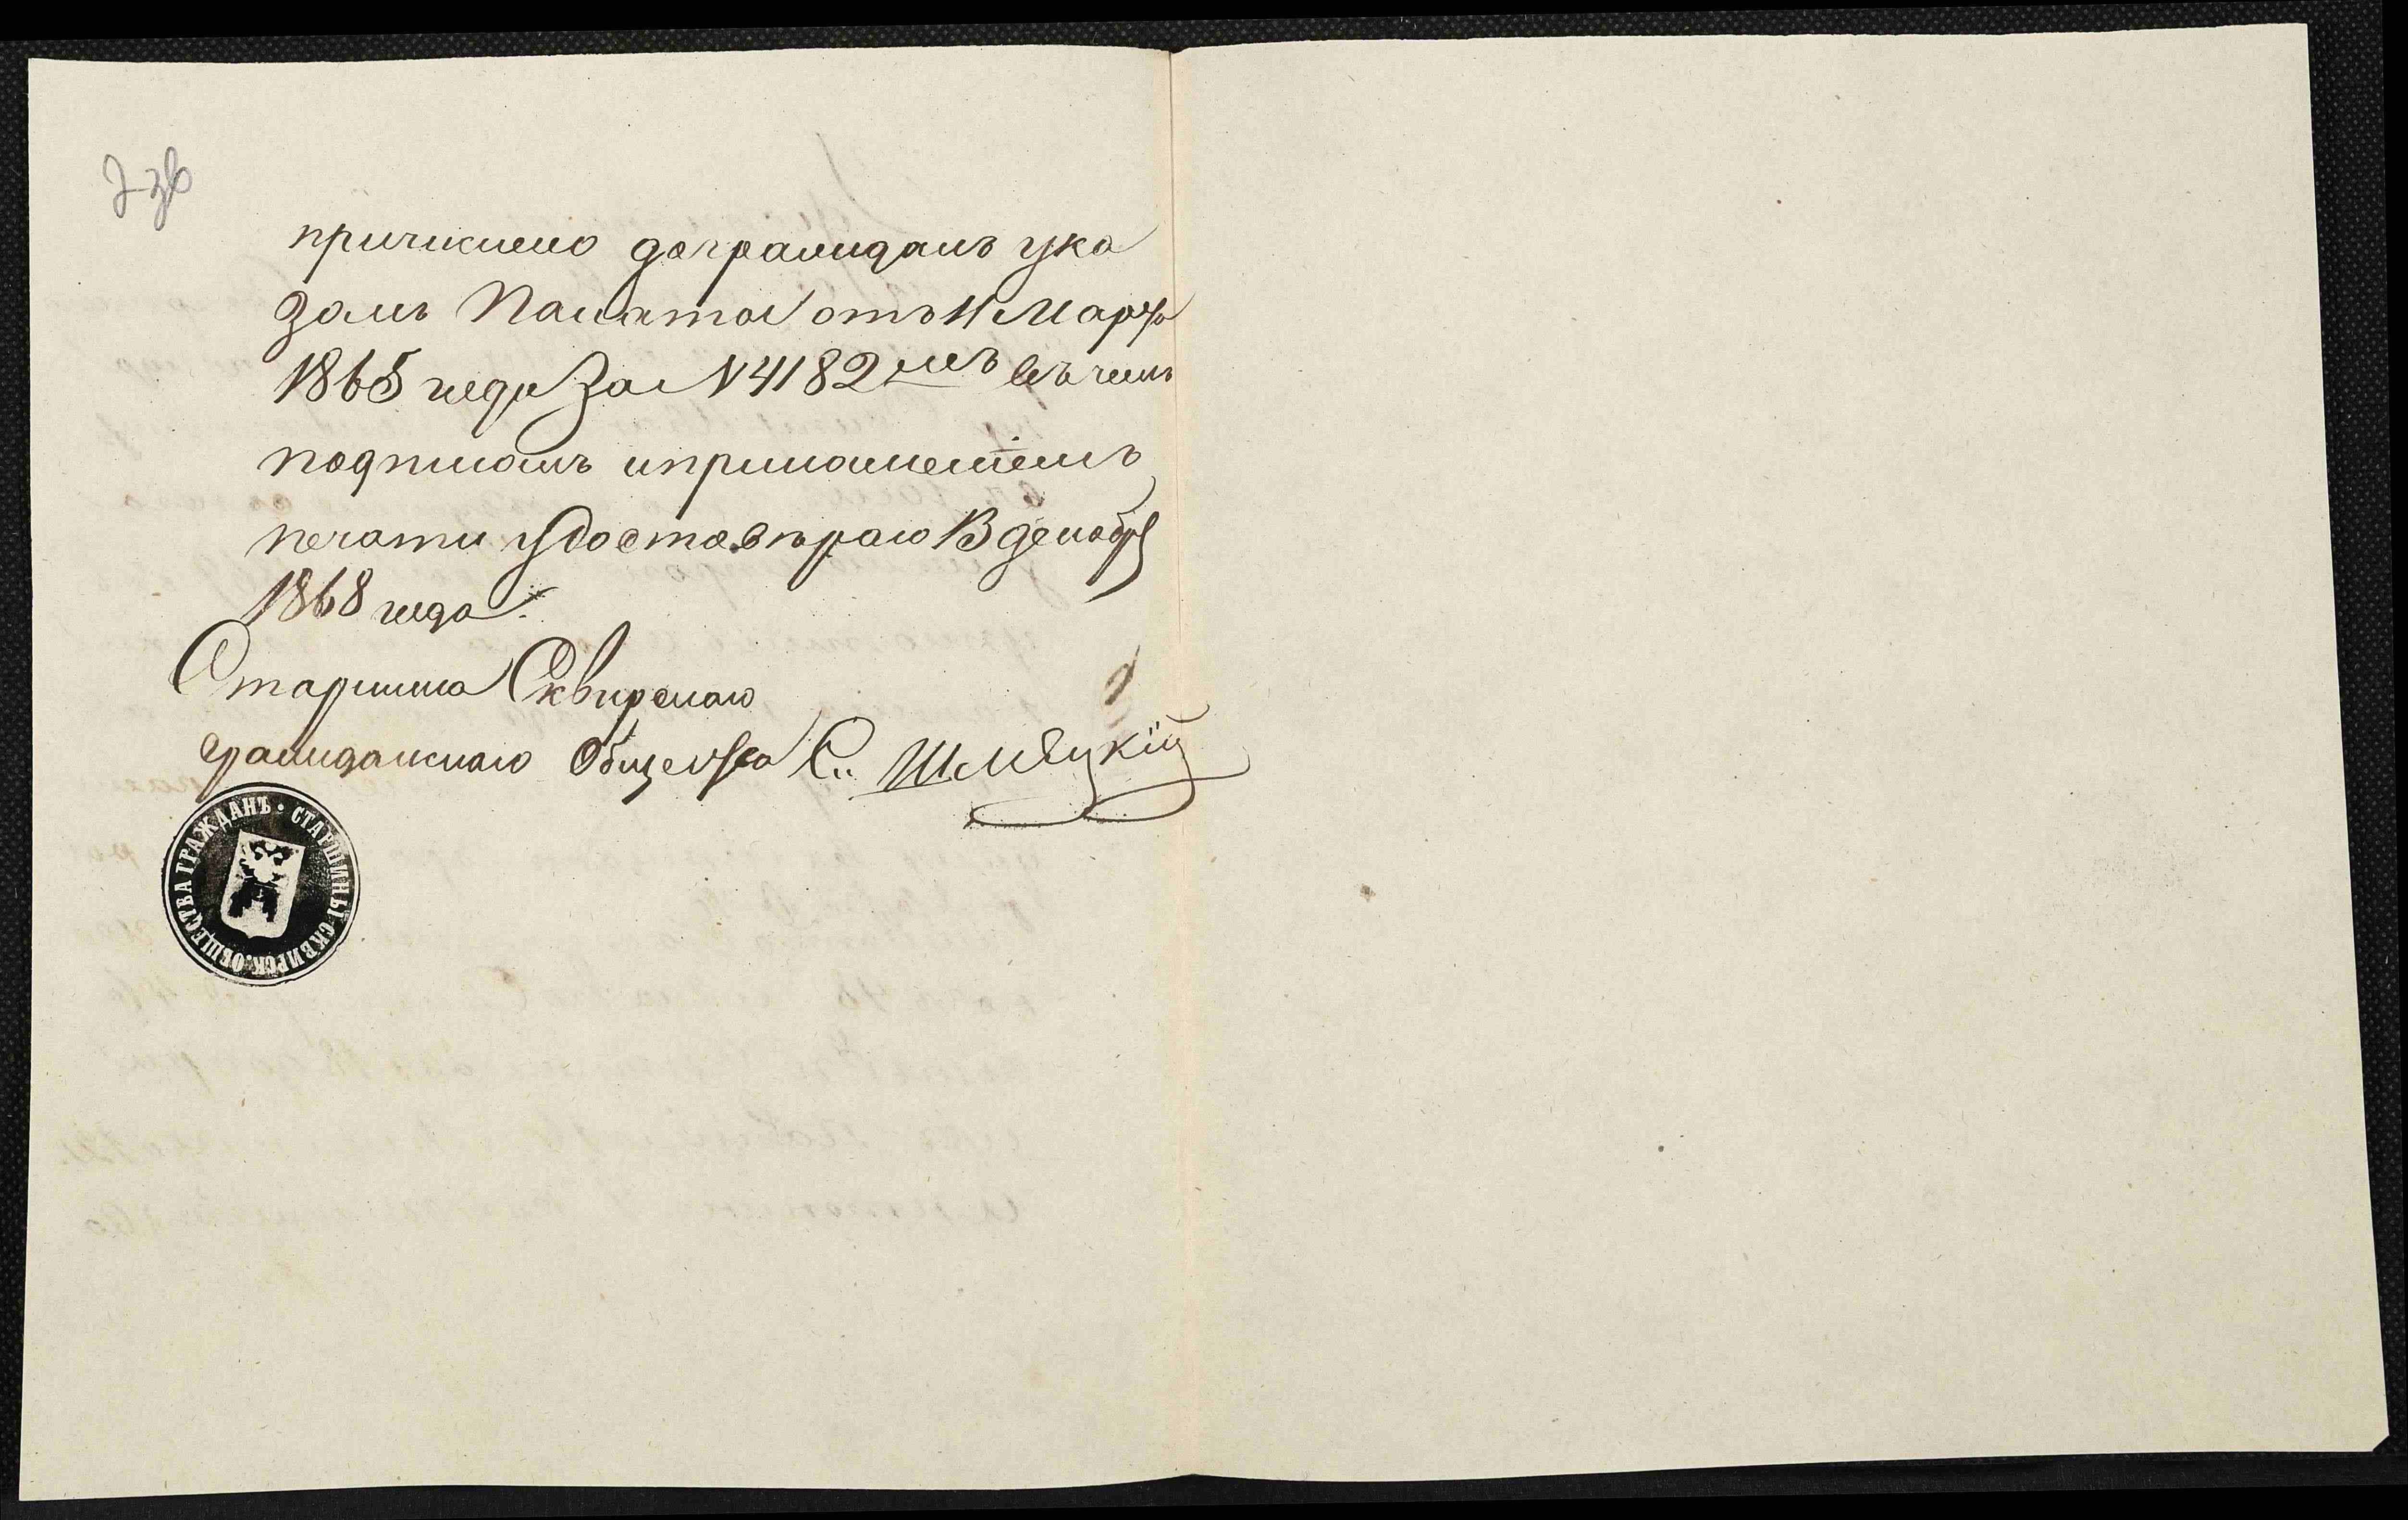 причислено дограждамъ ука
замъ Палаты отъ 11 Марта
1865 года за N 4182 мъ въ чемъ
подписамъ и приложеніемъ
печати удостовѣраю 13 декабря
1868 года.
Старшина Сквирскаго
гражданскаго Общества С.
СТАРШИНЫ СКВИРСК. ОБЩЕСТВА ГРАЖДАНЪ